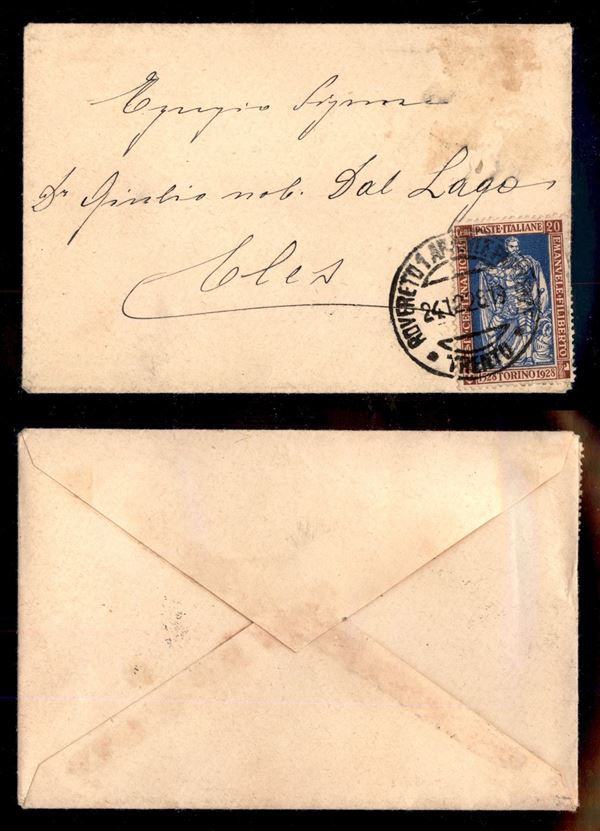 Egregio Signor
Dr Giulio nob. Dal Lago
Cles
POSTE·ITALIANE 20
EMANUELE·FILIBERTO
1528 TORINO 1928
ROVERETO 1
24.12.28.18
* TRENTO *